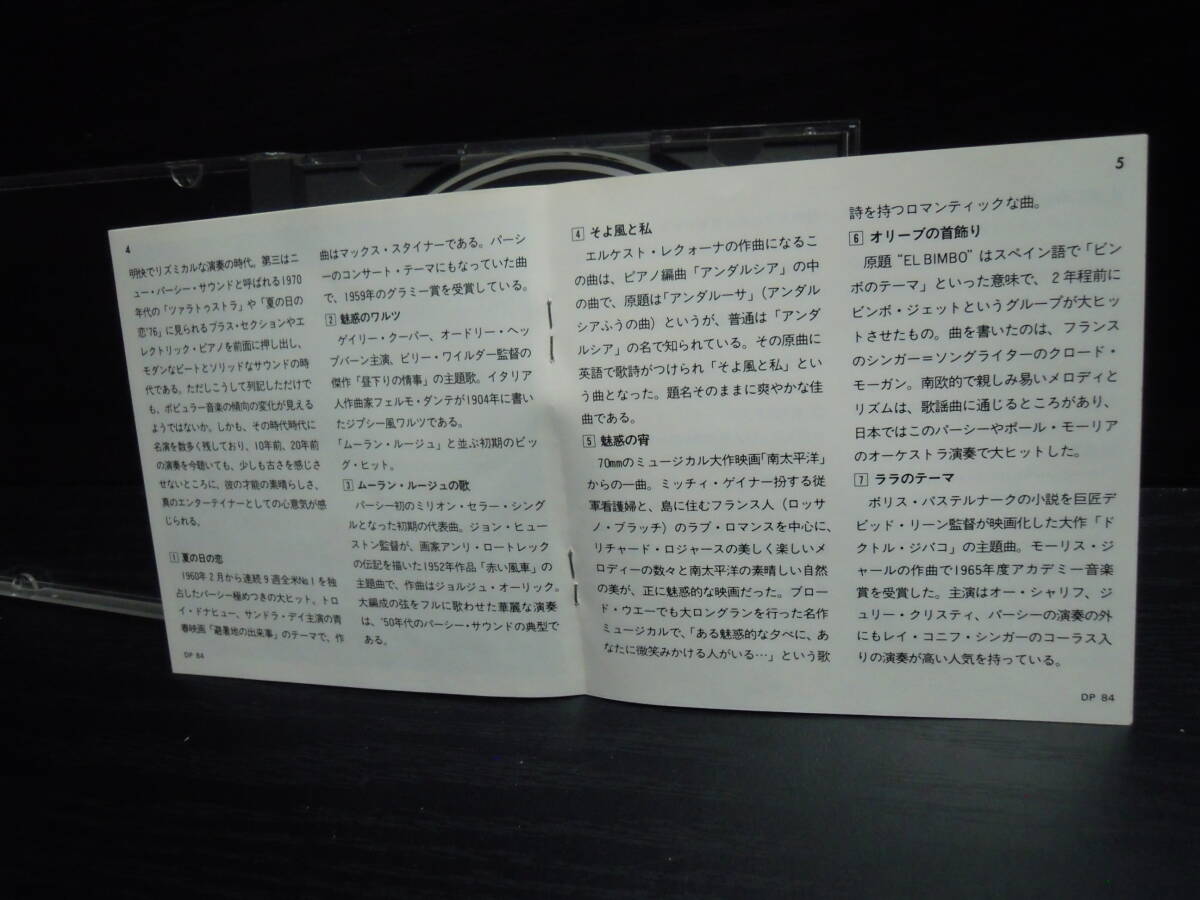 4
明快でリズミカルな演奏の時代。第三はニ
ュー・パーシー・サウンドと呼ばれる1970
年代の「ツァラトゥストラ」や「夏の日の
恋'76」に見られるブラス・セクションやエ
レクトリック・ピアノを前面に押し出し、
モダンなビートとソリッドなサウンドの時
代である。ただしこうして列記しただけで
も、ポピュラー音楽の傾向の変化が見える
ようではないか。しかも、その時代時代に
名演を数多く残しており、10年前、20年前
の演奏を今聴いても、少しも古さを感じさ
せないところに、彼の才能の素晴らしさ、
真のエンターテイナーとしての心意気が感
じられる。
1 夏の日の恋
1960年2月から連続9週全米No.1を独
占したパーシー極めつきの大ヒット。トロ
イ・ドナヒュー、サンドラ・デイ主演の青
春映画「避暑地の出来事」のテーマで、作
DP 84
曲はマックス・スタイナーである。パーシ
ーのコンサート・テーマにもなっていた曲
で、1959年のグラミー賞を受賞している。
2 魅惑のワルツ
ゲイリー・クーパー、オードリー・ヘッ
プバーン主演、ビリー・ワイルダー監督の
傑作「昼下りの情事」の主題歌。イタリア
人作曲家フェルモ・ダンテが1904年に書い
たジプシー風ワルツである。
「ムーラン・ルージュ」と並ぶ初期のビッ
グ・ヒット。
3 ムーラン・ルージュの歌
パーシー初のミリオン・セラー・シング
ルとなった初期の代表曲。ジョン・ヒュー
ストン監督が、画家アンリ・ロートレック
の伝記を描いた1952年作品「赤い風車」の
主題曲で、作曲はジョルジュ・オーリック。
大編成の弦をフルに歌わせた華麗な演奏
は、'50年代のパーシー・サウンドの典型で
ある。
4 そよ風と私
エルケスト・レクォーナの作曲になるこ
の曲は、ピアノ組曲「アンダルシア」の中
の曲で、原題は「アンダルーサ」（アンダル
シアふうの曲）というが、普通は「アンダ
ルシア」の名で知られている。その原曲に
英語で歌詩がつけられ「そよ風と私」とい
う曲となった。題名そのままに爽やかな佳
曲である。
5 魅惑の宵
70mmのミュージカル大作映画「南太平洋」
からの一曲。ミッチィ・ゲイナー扮する従
軍看護婦と、島に住むフランス人（ロッサ
ノ・ブラッチ）のラブ・ロマンスを中心に、
リチャード・ロジャースの美しく楽しいメ
ロディーの数々と南太平洋の素晴しい自然
の美が、正に魅惑的な映画だった。ブロー
ド・ウエーでも大ロングランを行った名作
ミュージカルで、「ある魅惑的な夕べに、あ
なたに微笑みかける人がいる…」という歌
5
詩を持つロマンティックな曲。
6 オリーブの首飾り
原題“EL BIMBO”はスペイン語で「ビン
ボのテーマ」といった意味で、2年程前に
ビンボ・ジェットというグループが大ヒッ
トさせたもの。曲を書いたのは、フランス
のシンガー＝ソングライターのクロード・
モーガン。南欧的で親しみ易いメロディと
リズムは、歌謡曲に通じるところがあり、
日本ではこのパーシーやポール・モーリア
のオーケストラ演奏で大ヒットした。
7 ララのテーマ
ボリス・パステルナークの小説を巨匠デ
ビッド・リーン監督が映画化した大作「ド
クトル・ジバコ」の主題曲。モーリス・ジ
ャールの作曲で1965年度アカデミー音楽
賞を受賞した。主演はオー・シャリフ、ジ
ュリー・クリスティ、パーシーの演奏の外
にもレイ・コニフ・シンガーのコーラス入
りの演奏が高い人気を持っている。
DP 84